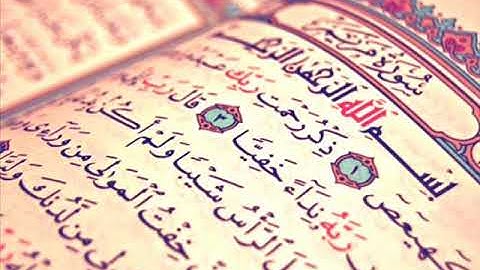 سُورَةُ مَرْيَمَ
بِسْمِ اللَّهِ الرَّحْمَٰنِ الرَّحِيمِ
هيعص ١ ذِكْرُ رَحْمَتِ رَبِّكَ
رَبَّهُ نِدَآءً خَفِيًّا ٣ قَالَ رَبِّ
الرَّأْسُ شَيْبًا وَلَمْ أَكُنۢ
خِفْتُ ٱلْمَوَٰلِىَ مِن وَرَآءِى
لِى مِن لَّدُنكَ